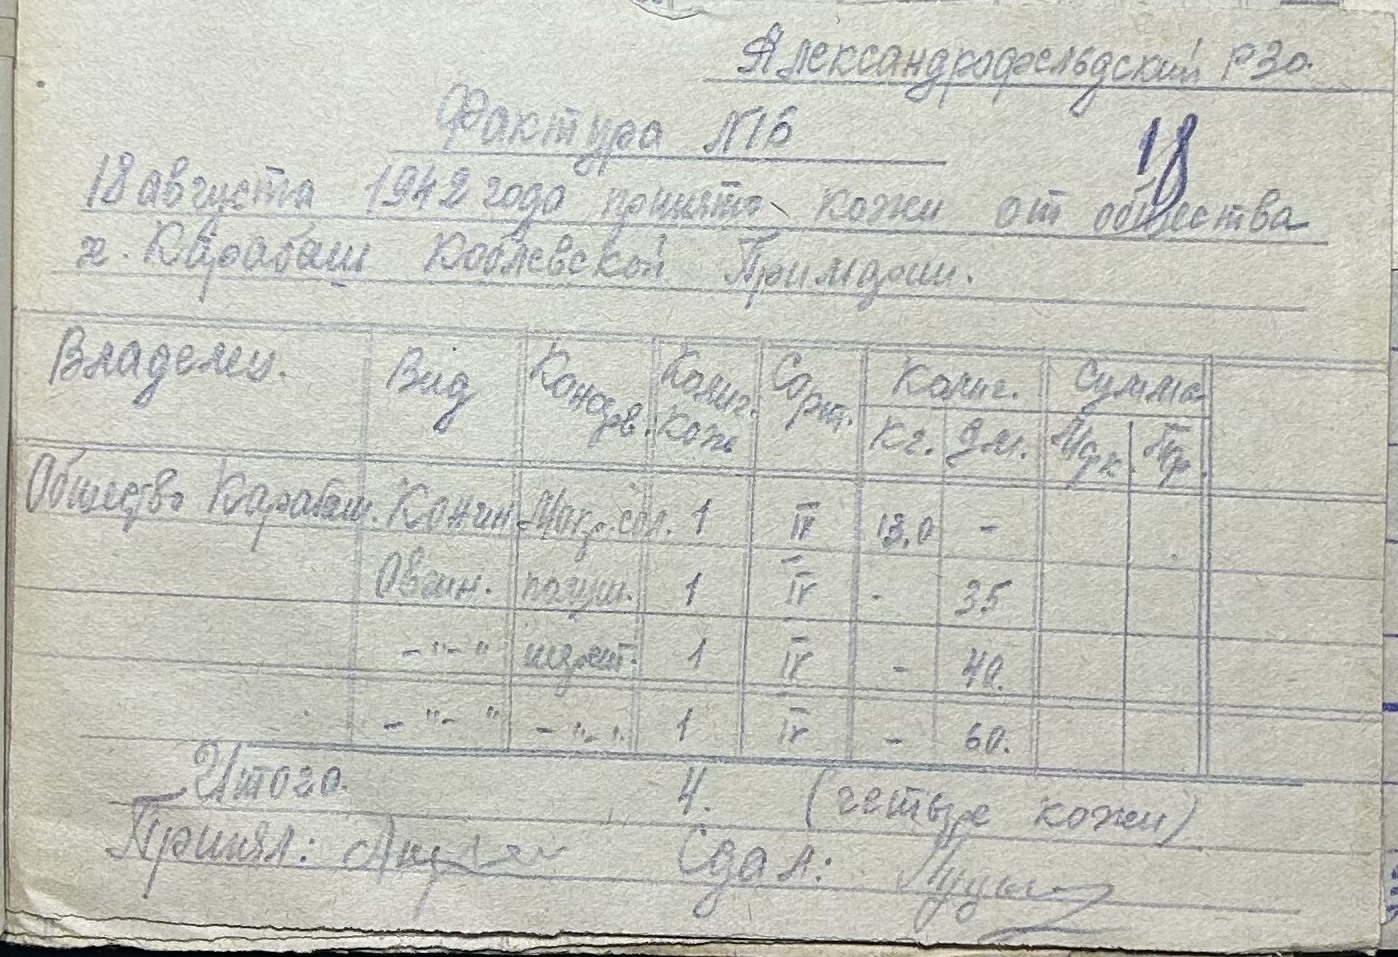 Александрофельдский РЗО.
Фактура №16
18
18 августа 1942 года принято кожи от общества
х. Карабаш Коблевской Примдрии.
Владелец. Вид Консерв. Колич. кож Сорт. Колич. Сумма
Кг. Дм. Мдк. Пф.
Общество Карабаш. Кончин. Мокр. сол. 1 IV 13,0 -
Овчин. 1 IV - 35
-"-" 1 IV - 40.
-"-" -"-" 1 IV - 60.
Итого. 4. (четыре кожи)
Принял: Сдал: